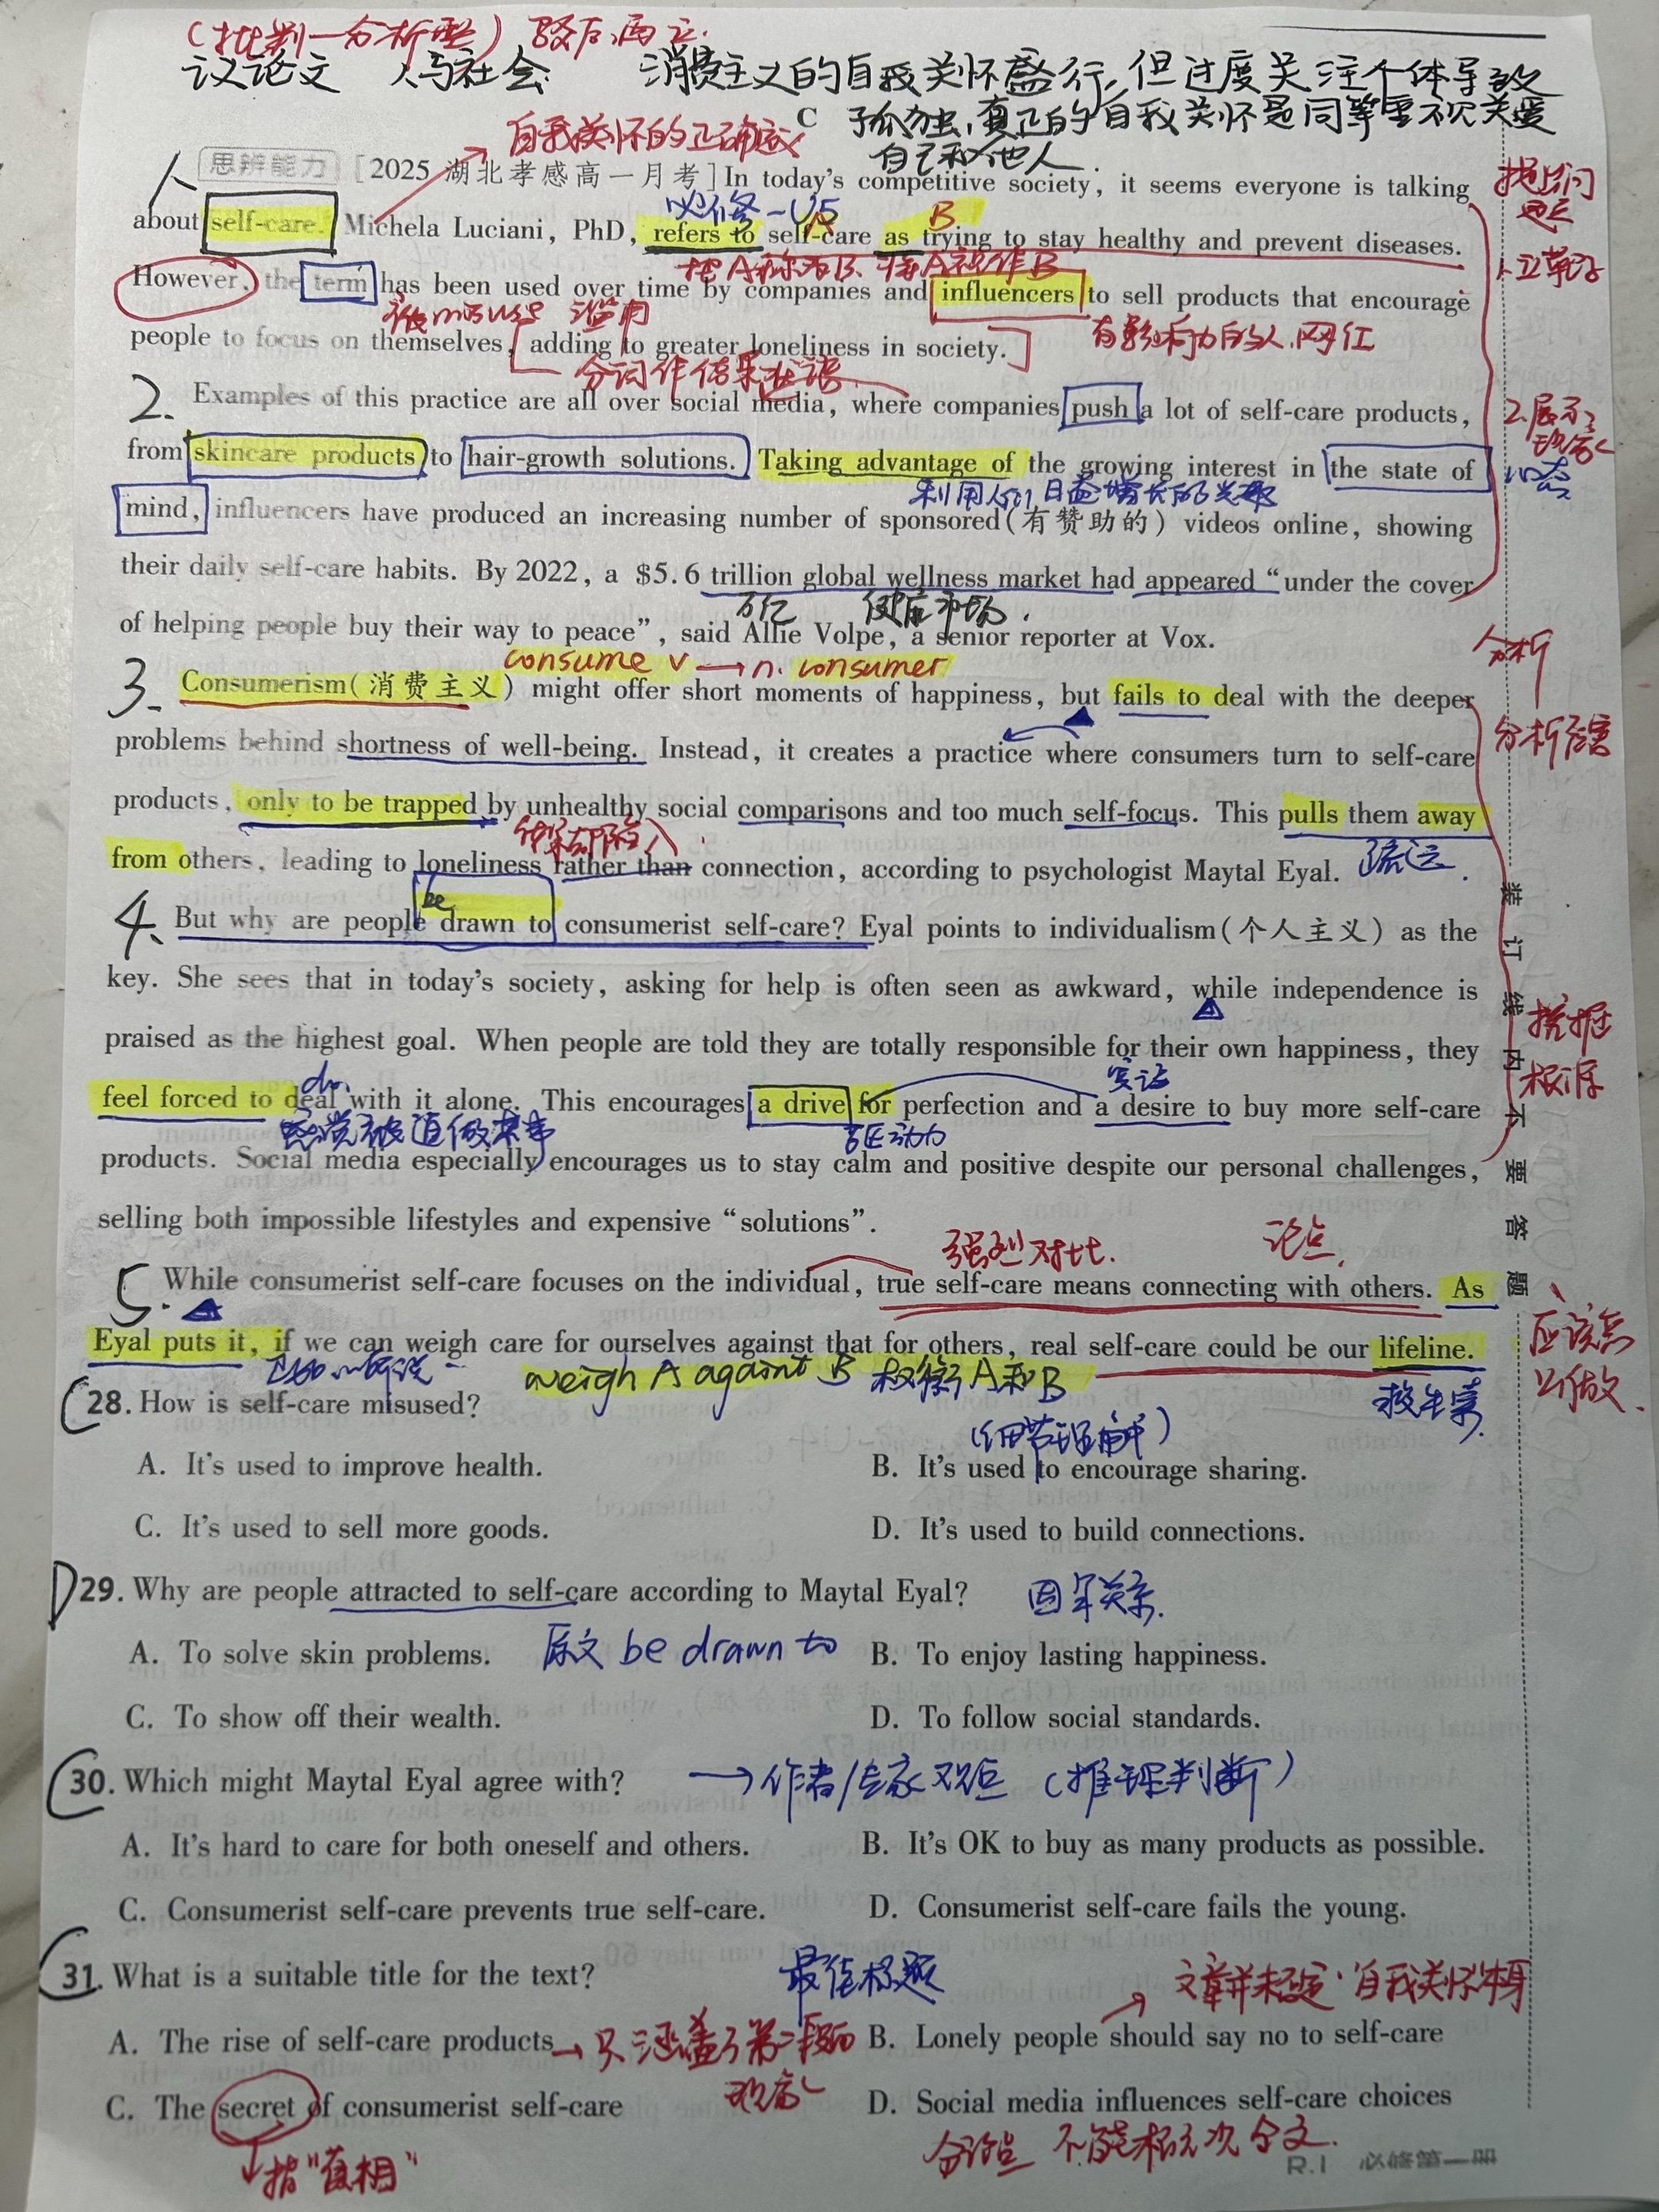 (批判—分析型) 驳后再立.
议论文 人与社会 消费主义的自我关怀盛行,但过度关注个体导致
C 孤独,真正的自我关怀是同等重视关爱
自己和他人.
自我关怀的正确定义
1、思辨能力 [2025 湖北孝感高一月考]In today's competitive society, it seems everyone is talking
必修一U5 A B
about self-care. Michela Luciani, PhD, refers to self-care as trying to stay healthy and prevent diseases.
把A称为B、将A视作B
However, the term has been used over time by companies and influencers to sell products that encourage
被misuse 滥用
有影响力的人,网红
people to focus on themselves, adding to greater loneliness in society.
分词作结果状语
2. Examples of this practice are all over social media, where companies push a lot of self-care products,
from skincare products to hair-growth solutions. Taking advantage of the growing interest in the state of
利用人们日益增长的兴趣
心态
mind, influencers have produced an increasing number of sponsored(有赞助的) videos online, showing
their daily self-care habits. By 2022, a $5.6 trillion global wellness market had appeared “under the cover
万亿 健康市场.
of helping people buy their way to peace”, said Allie Volpe, a senior reporter at Vox.
consume v → n. consumer
3. Consumerism(消费主义) might offer short moments of happiness, but fails to deal with the deeper
problems behind shortness of well-being. Instead, it creates a practice where consumers turn to self-care
products, only to be trapped by unhealthy social comparisons and too much self-focus. This pulls them away
结果却陷入
from others, leading to loneliness rather than connection, according to psychologist Maytal Eyal.
疏远.
be
4. But why are people drawn to consumerist self-care? Eyal points to individualism(个人主义) as the
key. She sees that in today's society, asking for help is often seen as awkward, while independence is
praised as the highest goal. When people are told they are totally responsible for their own happiness, they
do. 宾语
feel forced to deal with it alone. This encourages a drive for perfection and a desire to buy more self-care
感觉被迫做某事 驱动力
products. Social media especially encourages us to stay calm and positive despite our personal challenges,
selling both impossible lifestyles and expensive “solutions”.
强烈对比. 论点.
5. While consumerist self-care focuses on the individual, true self-care means connecting with others. As
Eyal puts it, if we can weigh care for ourselves against that for others, real self-care could be our lifeline.
正如…所说 weigh A against B 权衡A和B
救生索.
提出问题
1、立靶子
2.展示现象
分析
分析危害
挖掘根源
应该怎么做.
装订线内不要答题
C 28. How is self-care misused?
(细节理解)
A. It's used to improve health.
B. It's used to encourage sharing.
C. It's used to sell more goods.
D. It's used to build connections.
D 29. Why are people attracted to self-care according to Maytal Eyal? 因果关系.
A. To solve skin problems. 原文 be drawn to
B. To enjoy lasting happiness.
C. To show off their wealth.
D. To follow social standards.
C 30. Which might Maytal Eyal agree with? → 作者/专家观点 (推理判断)
A. It's hard to care for both oneself and others.
B. It's OK to buy as many products as possible.
C. Consumerist self-care prevents true self-care.
D. Consumerist self-care fails the young.
C 31. What is a suitable title for the text? 最佳标题
文章并未否定“自我关怀”本身
A. The rise of self-care products → 只涵盖了第二段的现象
B. Lonely people should say no to self-care
C. The secret of consumerist self-care
D. Social media influences self-care choices
指“真相”
分论点 不能概括全文.
R.1 必修第一册